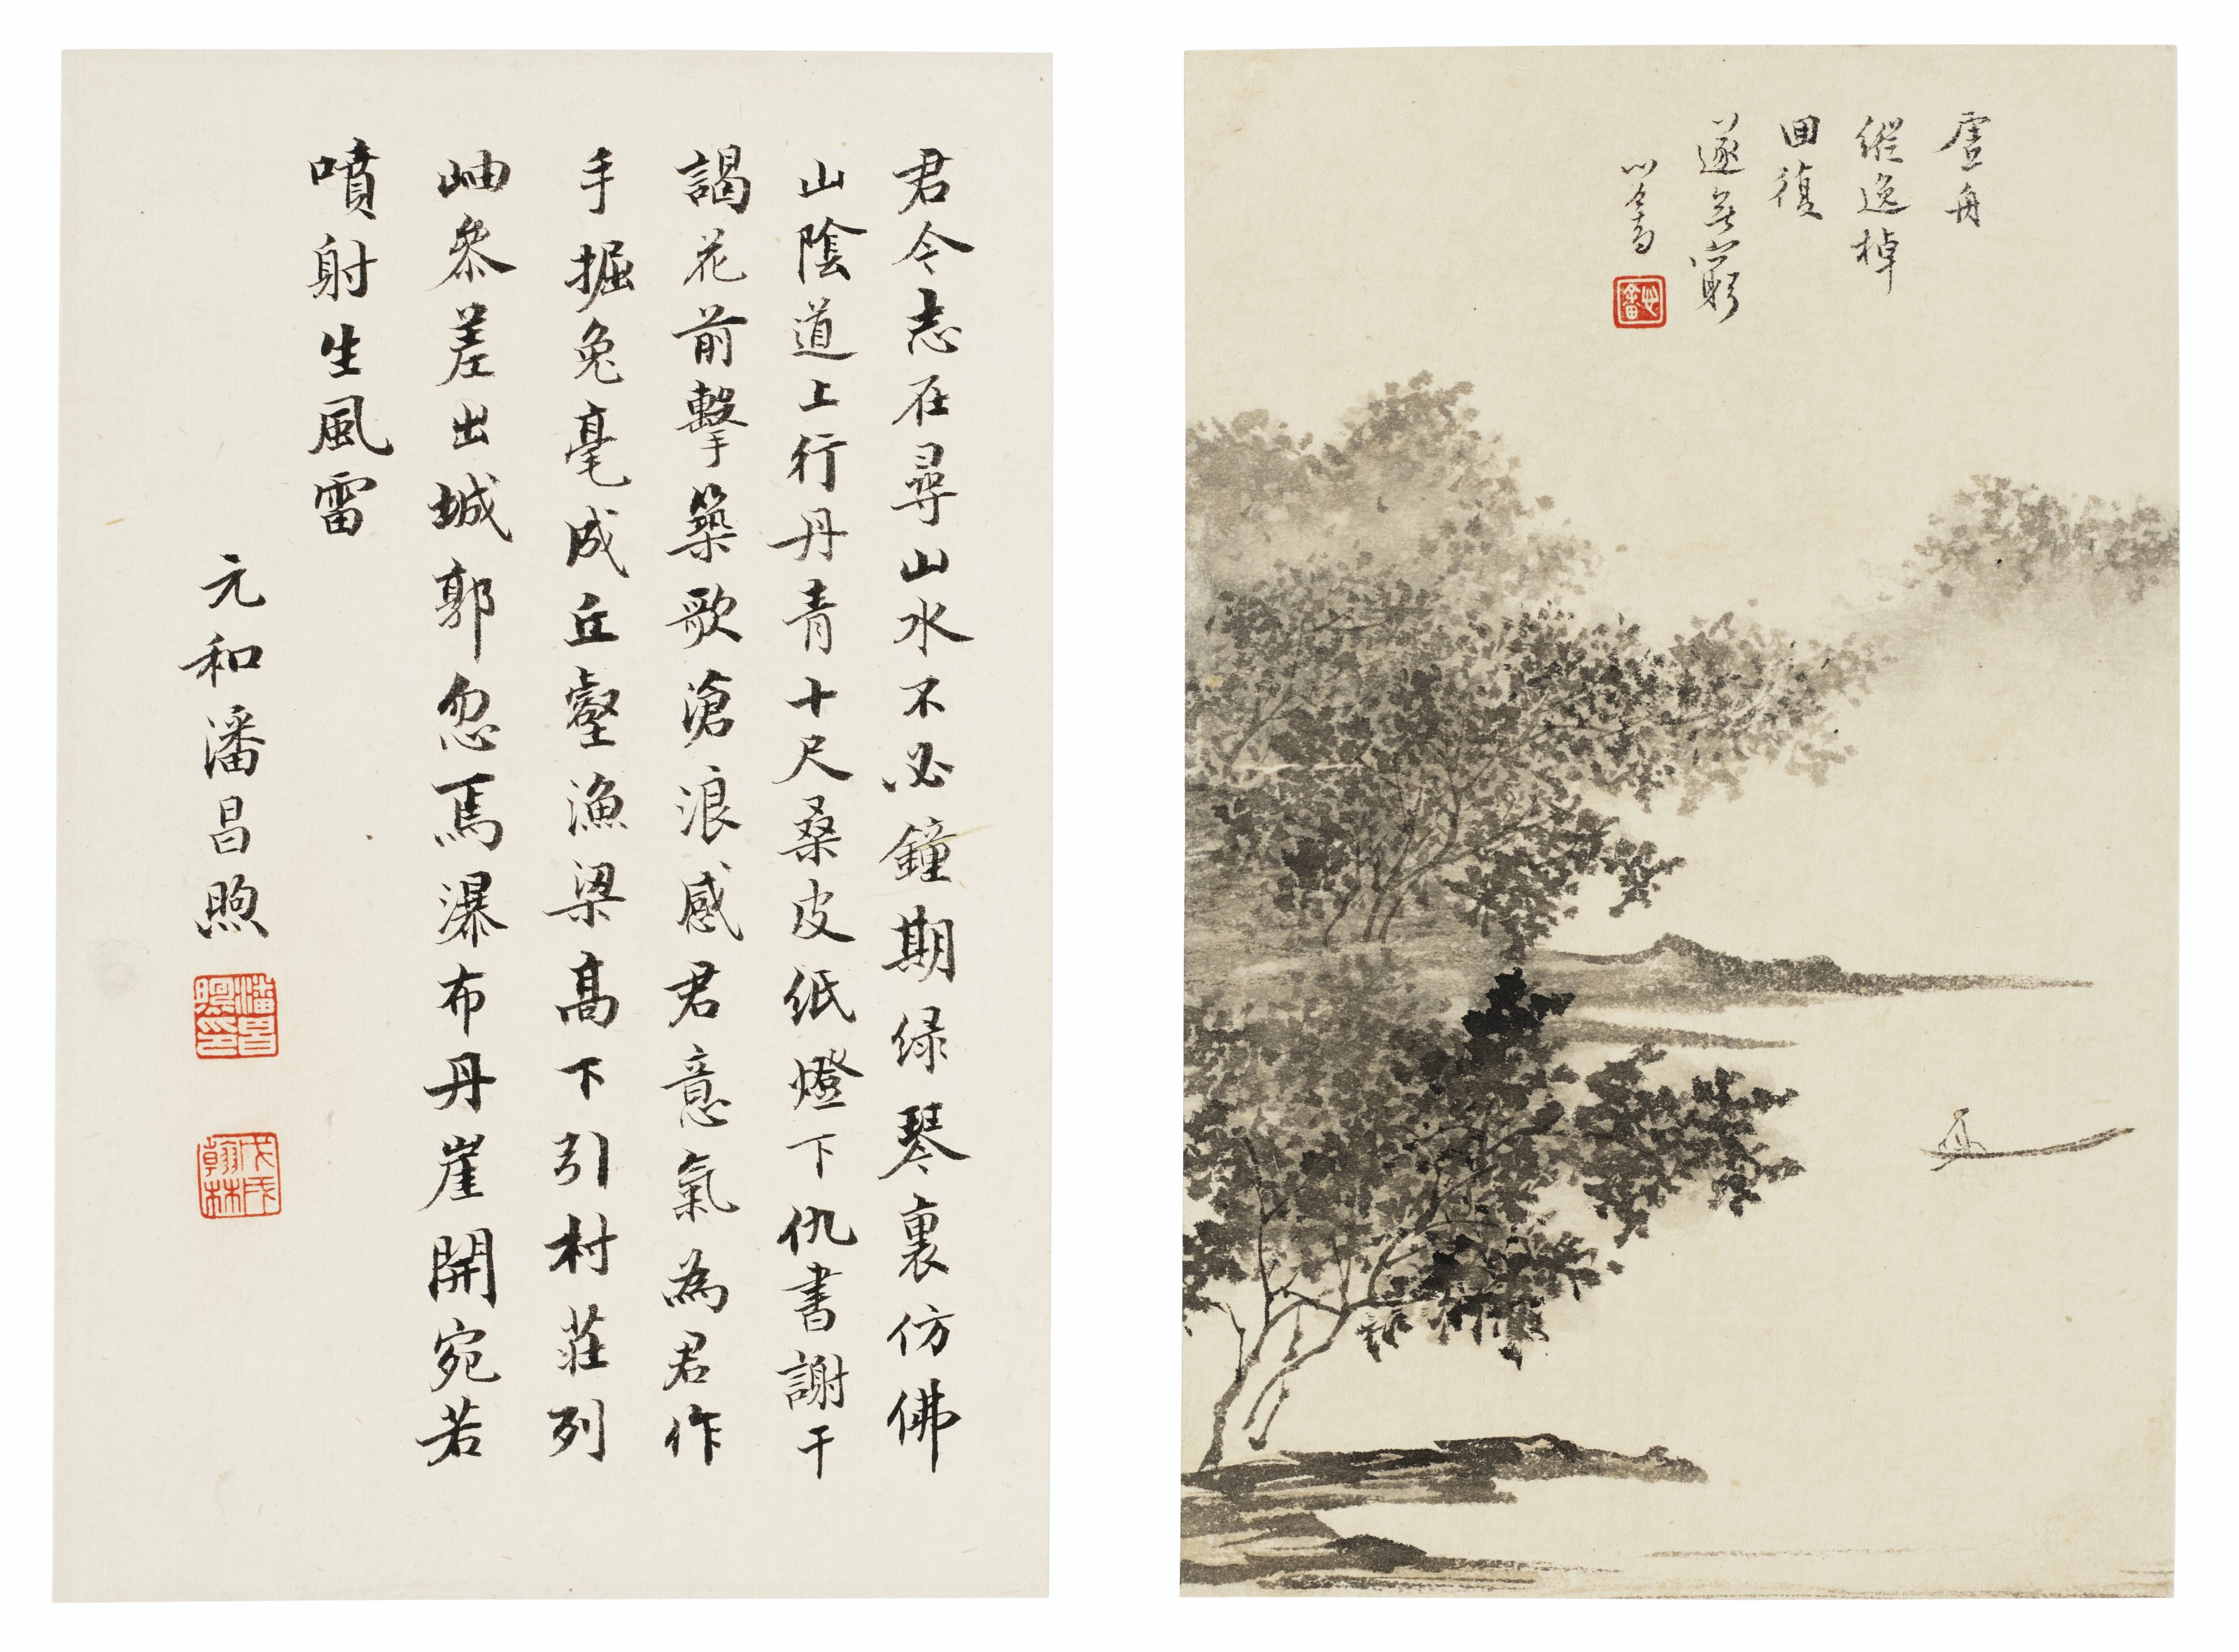 虛舟
縱逸棹
回復
遂無窮
心畬
心畬
君今志在尋山水不必鐘期緑琴裏仿佛
山陰道上行丹青十尺桑皮紙燈下仇書謝干
謁花前擊築歌滄浪感君意氣為君作
手掘兔毫成丘壑漁梁高下引村莊列
岫參差出城郭忽焉瀑布丹崖開宛若
噴射生風雷
元和潘昌煦
潘昌煦印
戊戌翰林